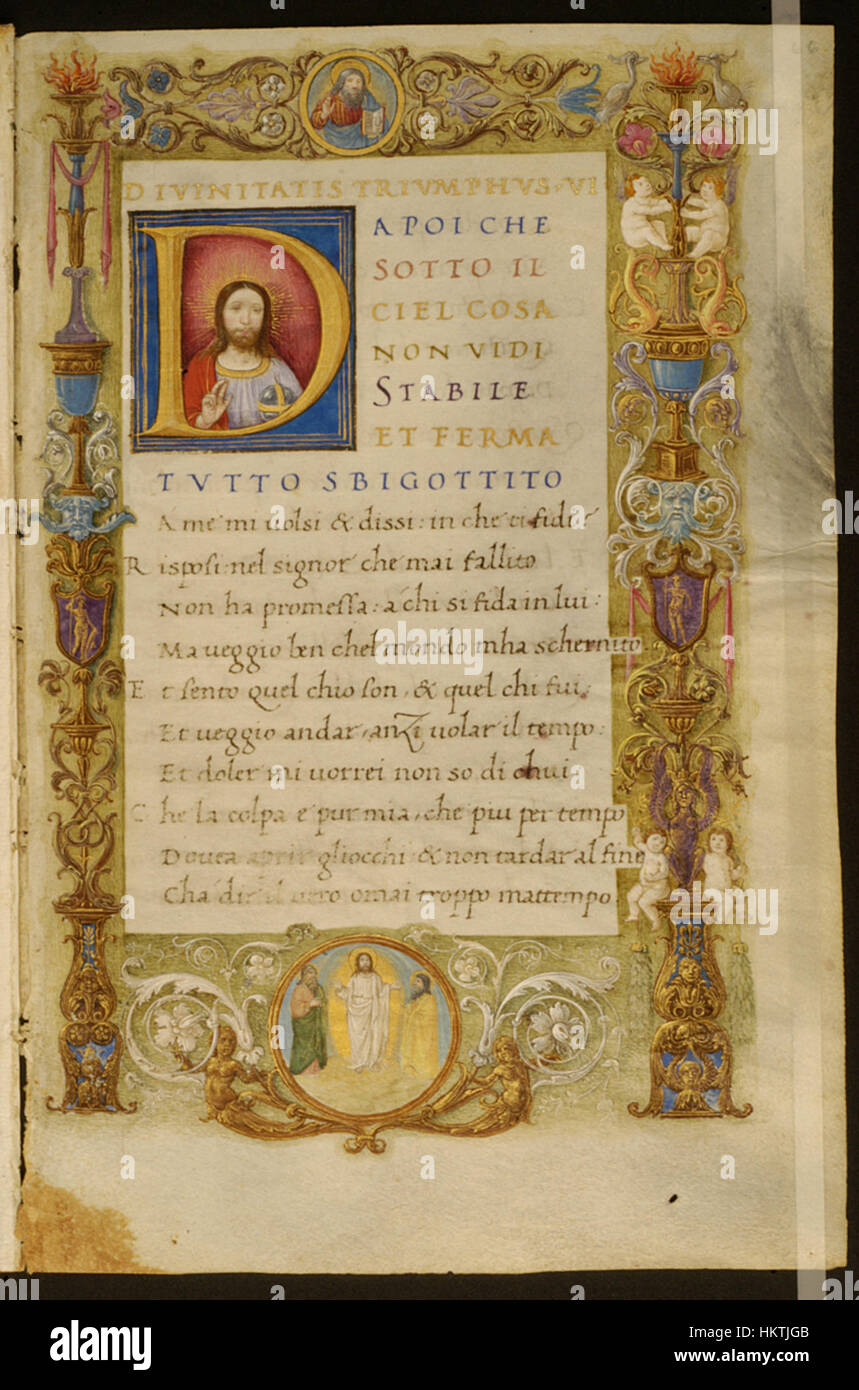 DIVINITATIS TRIVMPHVS·VI
DAPOI CHE
SOTTO IL
CIEL COSA
NON VIDI
STABILE
ET FERMA
TVTTO SBIGOTTITO
A me mi uolsi & dissi: in che ti fidi?
Risposi: nel signor che mai fallito
Non ha promessa: a chi si fida in lui:
Ma ueggio ben chel mondo mha schernito
Et sento quel chio son, & quel chi fui:
Et ueggio andar, anzi uolar il tempo:
Et doler mi uorrei non so di chui
Che la colpa e pur mia, che piu per tempo
Douea aprir gliocchi & non tardar al fine
Cha dir il uero omai troppo mattempo.
alamy
Image ID: HKTJGB
www.alamy.com